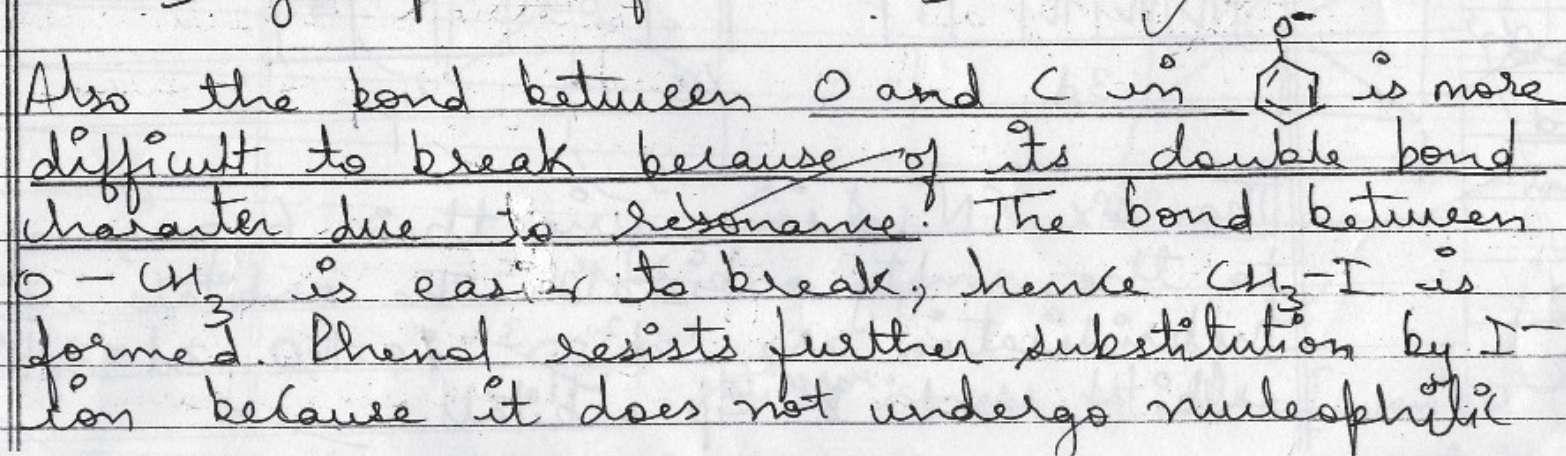 O⁻
Also the bond between O and C in is more
difficult to break because of its double bond
character due to resonance. The bond between
O - CH₃ is easier to break, hence CH₃-I is
formed. Phenol resists further substitution by I⁻
ion because it does not undergo nucleophilic